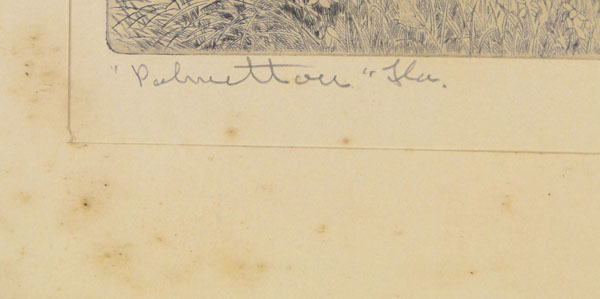 "Palmetton" Fla.